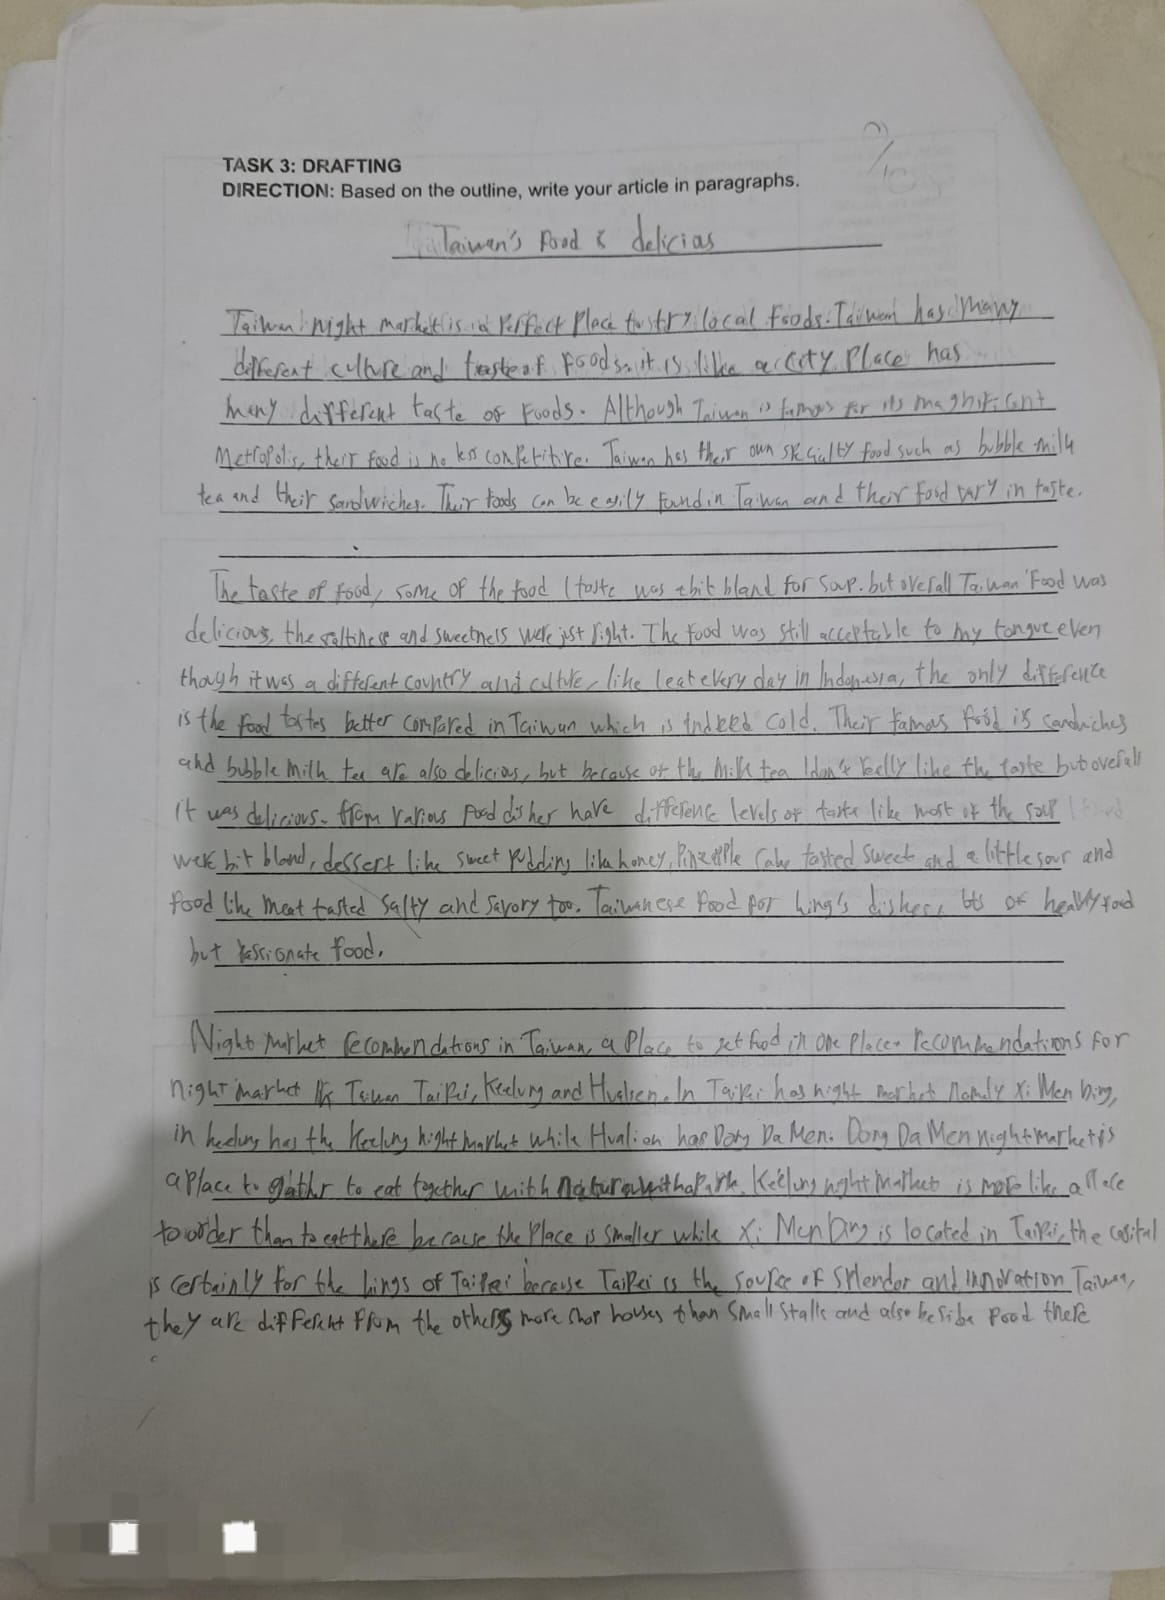 TASK 3: DRAFTING
DIRECTION: Based on the outline, write your article in paragraphs.
Taiwan's food & delicias
Taiwan night market is a Perfect Place to try local foods. Taiwan has many
different culture and taste of foods. it is like a city Place has
many different taste of foods. Although Taiwan is famous for its magnificant
Metropolis, their food is no less competitive. Taiwan has their own specialty food such as bubble milk
tea and their sandwiches. Their foods can be easily found in Taiwan and their food vary in taste.
The taste of food, some of the food I taste was a bit bland for soup. but overall Taiwan Food was
delicious, the saltiness and sweetness were just right. The food was still acceptable to my tongue even
though it was a different country and culture, like I eat every day in Indonesia, the only difference
is the food tastes better compared in Taiwan which is indeed cold. Their famous food is sandwiches
and bubble milk tea are also delicious, but because of the milk tea I don't really like the taste but overall
it was delicious. from various food disher have difference levels of taste like most of the soup I
were bit bland, dessert like sweet pudding like honey, Pineapple cake tasted sweet and a little sour and
food like meat tasted salty and savory too. Taiwanese food for king's dishes, of food
but food.
Night market recommendations in Taiwan, a Place to get food in one place. recommendations for
night market Taiwan TaiPei, Keelung and Hualien. In TaiPei has night market namely Xi Men Ding,
in keelung has the Keelung night market while Hualien has Dong Da Men. Dong Da Men night market is
a place to gather to eat together with nature with a Park. Keelung night market is more like a Place
to order than to eat there because the Place is smaller while Xi Men Ding is located in TaiPei, the capital
is certainly for the kings of TaiPei because TaiPei is the source of splendor and innovation Taiwan,
they are different from the others more shop houses than small stalls and also beside food there